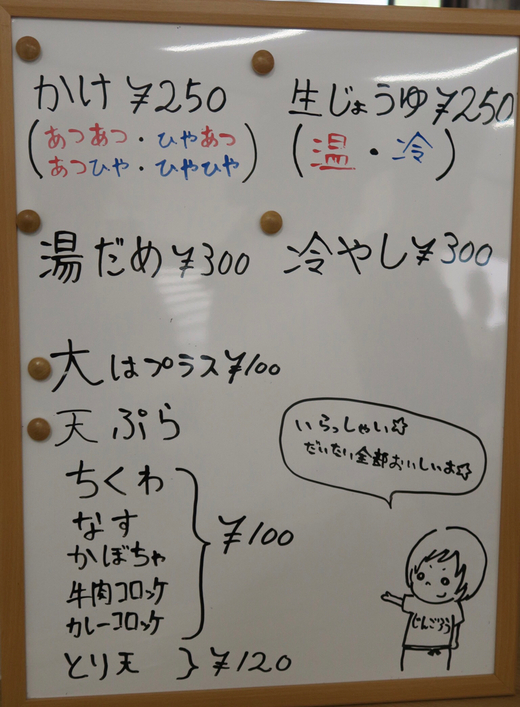 かけ ¥250
(あつあつ・ひやあつ
あつひや・ひやひや)
生じょうゆ ¥250
(温・冷)
湯だめ ¥300
冷やし ¥300
大はプラス ¥100
天ぷら
ちくわ
なす
かぼちゃ
牛肉コロッケ
カレーコロッケ
} ¥100
とり天 } ¥120
いらっしゃい☆
だいたい全部おいしいよ☆
じんごろう